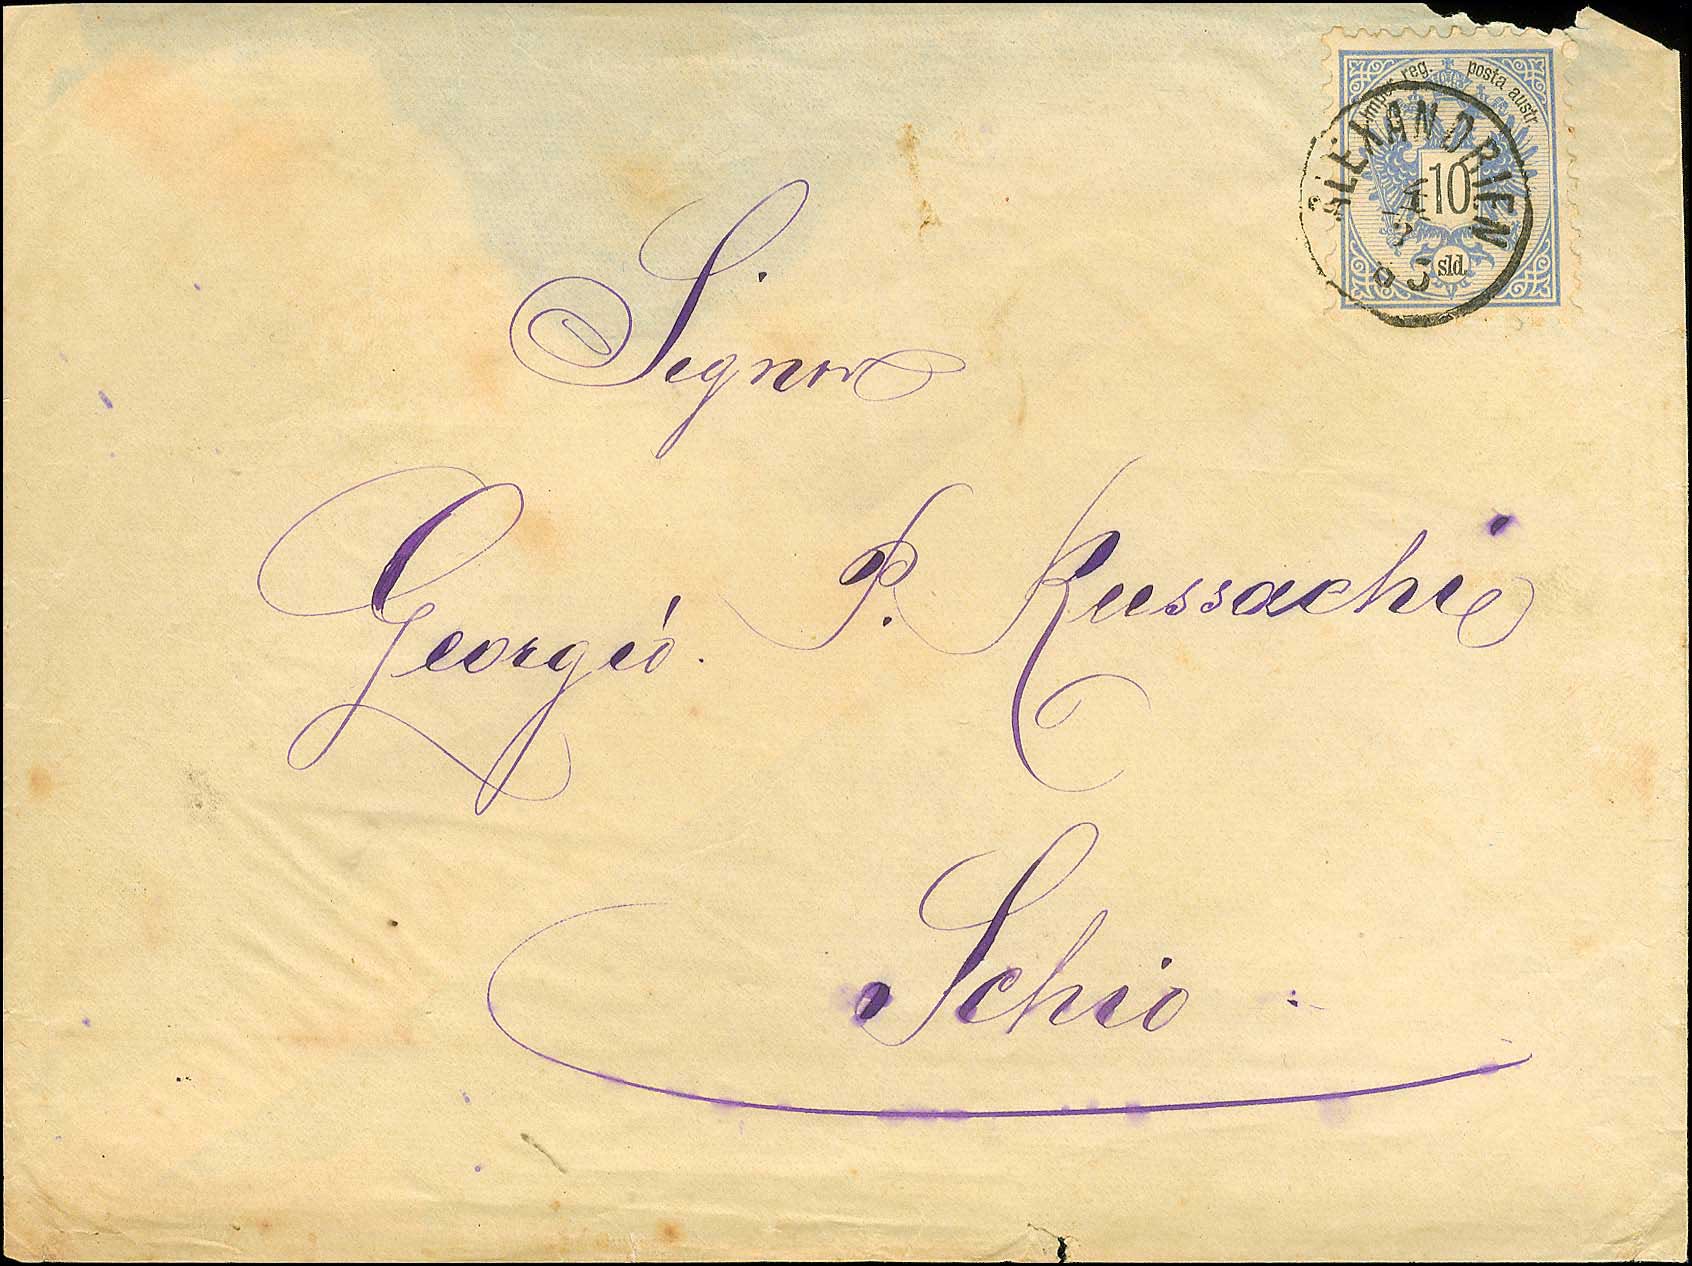 Imper. reg. posta austr.
ALEXANDRIEN
10
85
sld.
Signor
Georgio P. Russachi
Schio